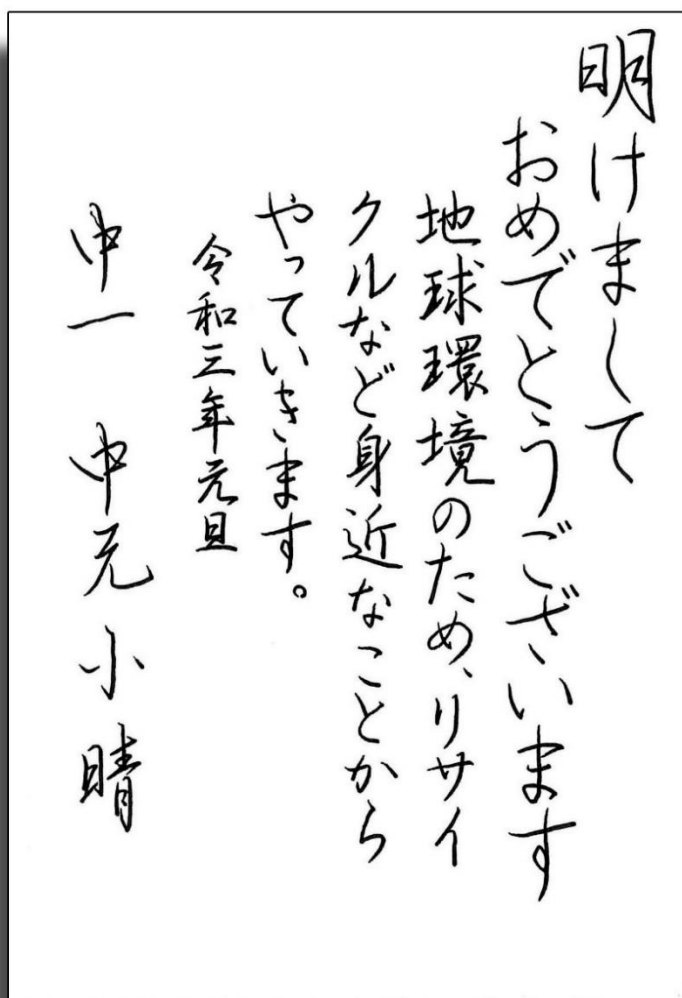 明けまして
おめでとうございます
地球環境のため、リサイ
クルなど身近なことから
やっていきます。
令和三年元旦
中一 中元小晴